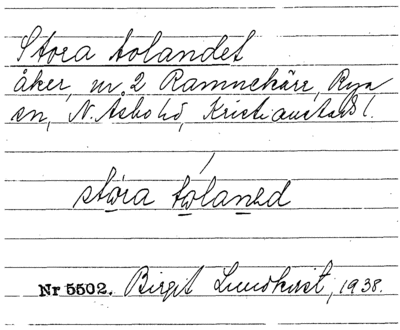 Stora tolandet
åker, nr 2 Ramnekärr, Rya
sn, N. Åsbo hd, Kristianstads l.
stora tolaned
Nr 5502. Birgit Lundkvist, 1938.